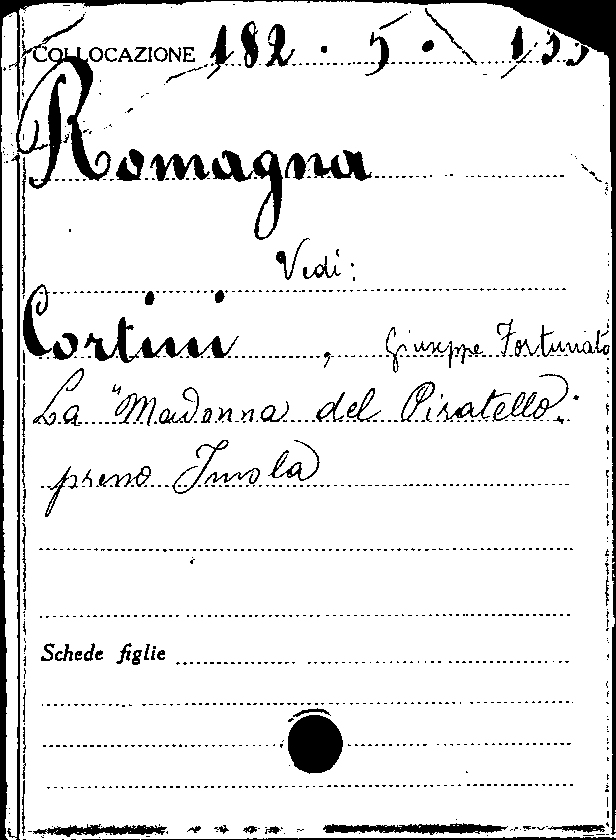 COLLOCAZIONE 182 · 5 ·
Romagna
Vedi:
Cortini, Giuseppe Fortunato
La "Madonna del Piratello."
presso Imola
Schede figlie